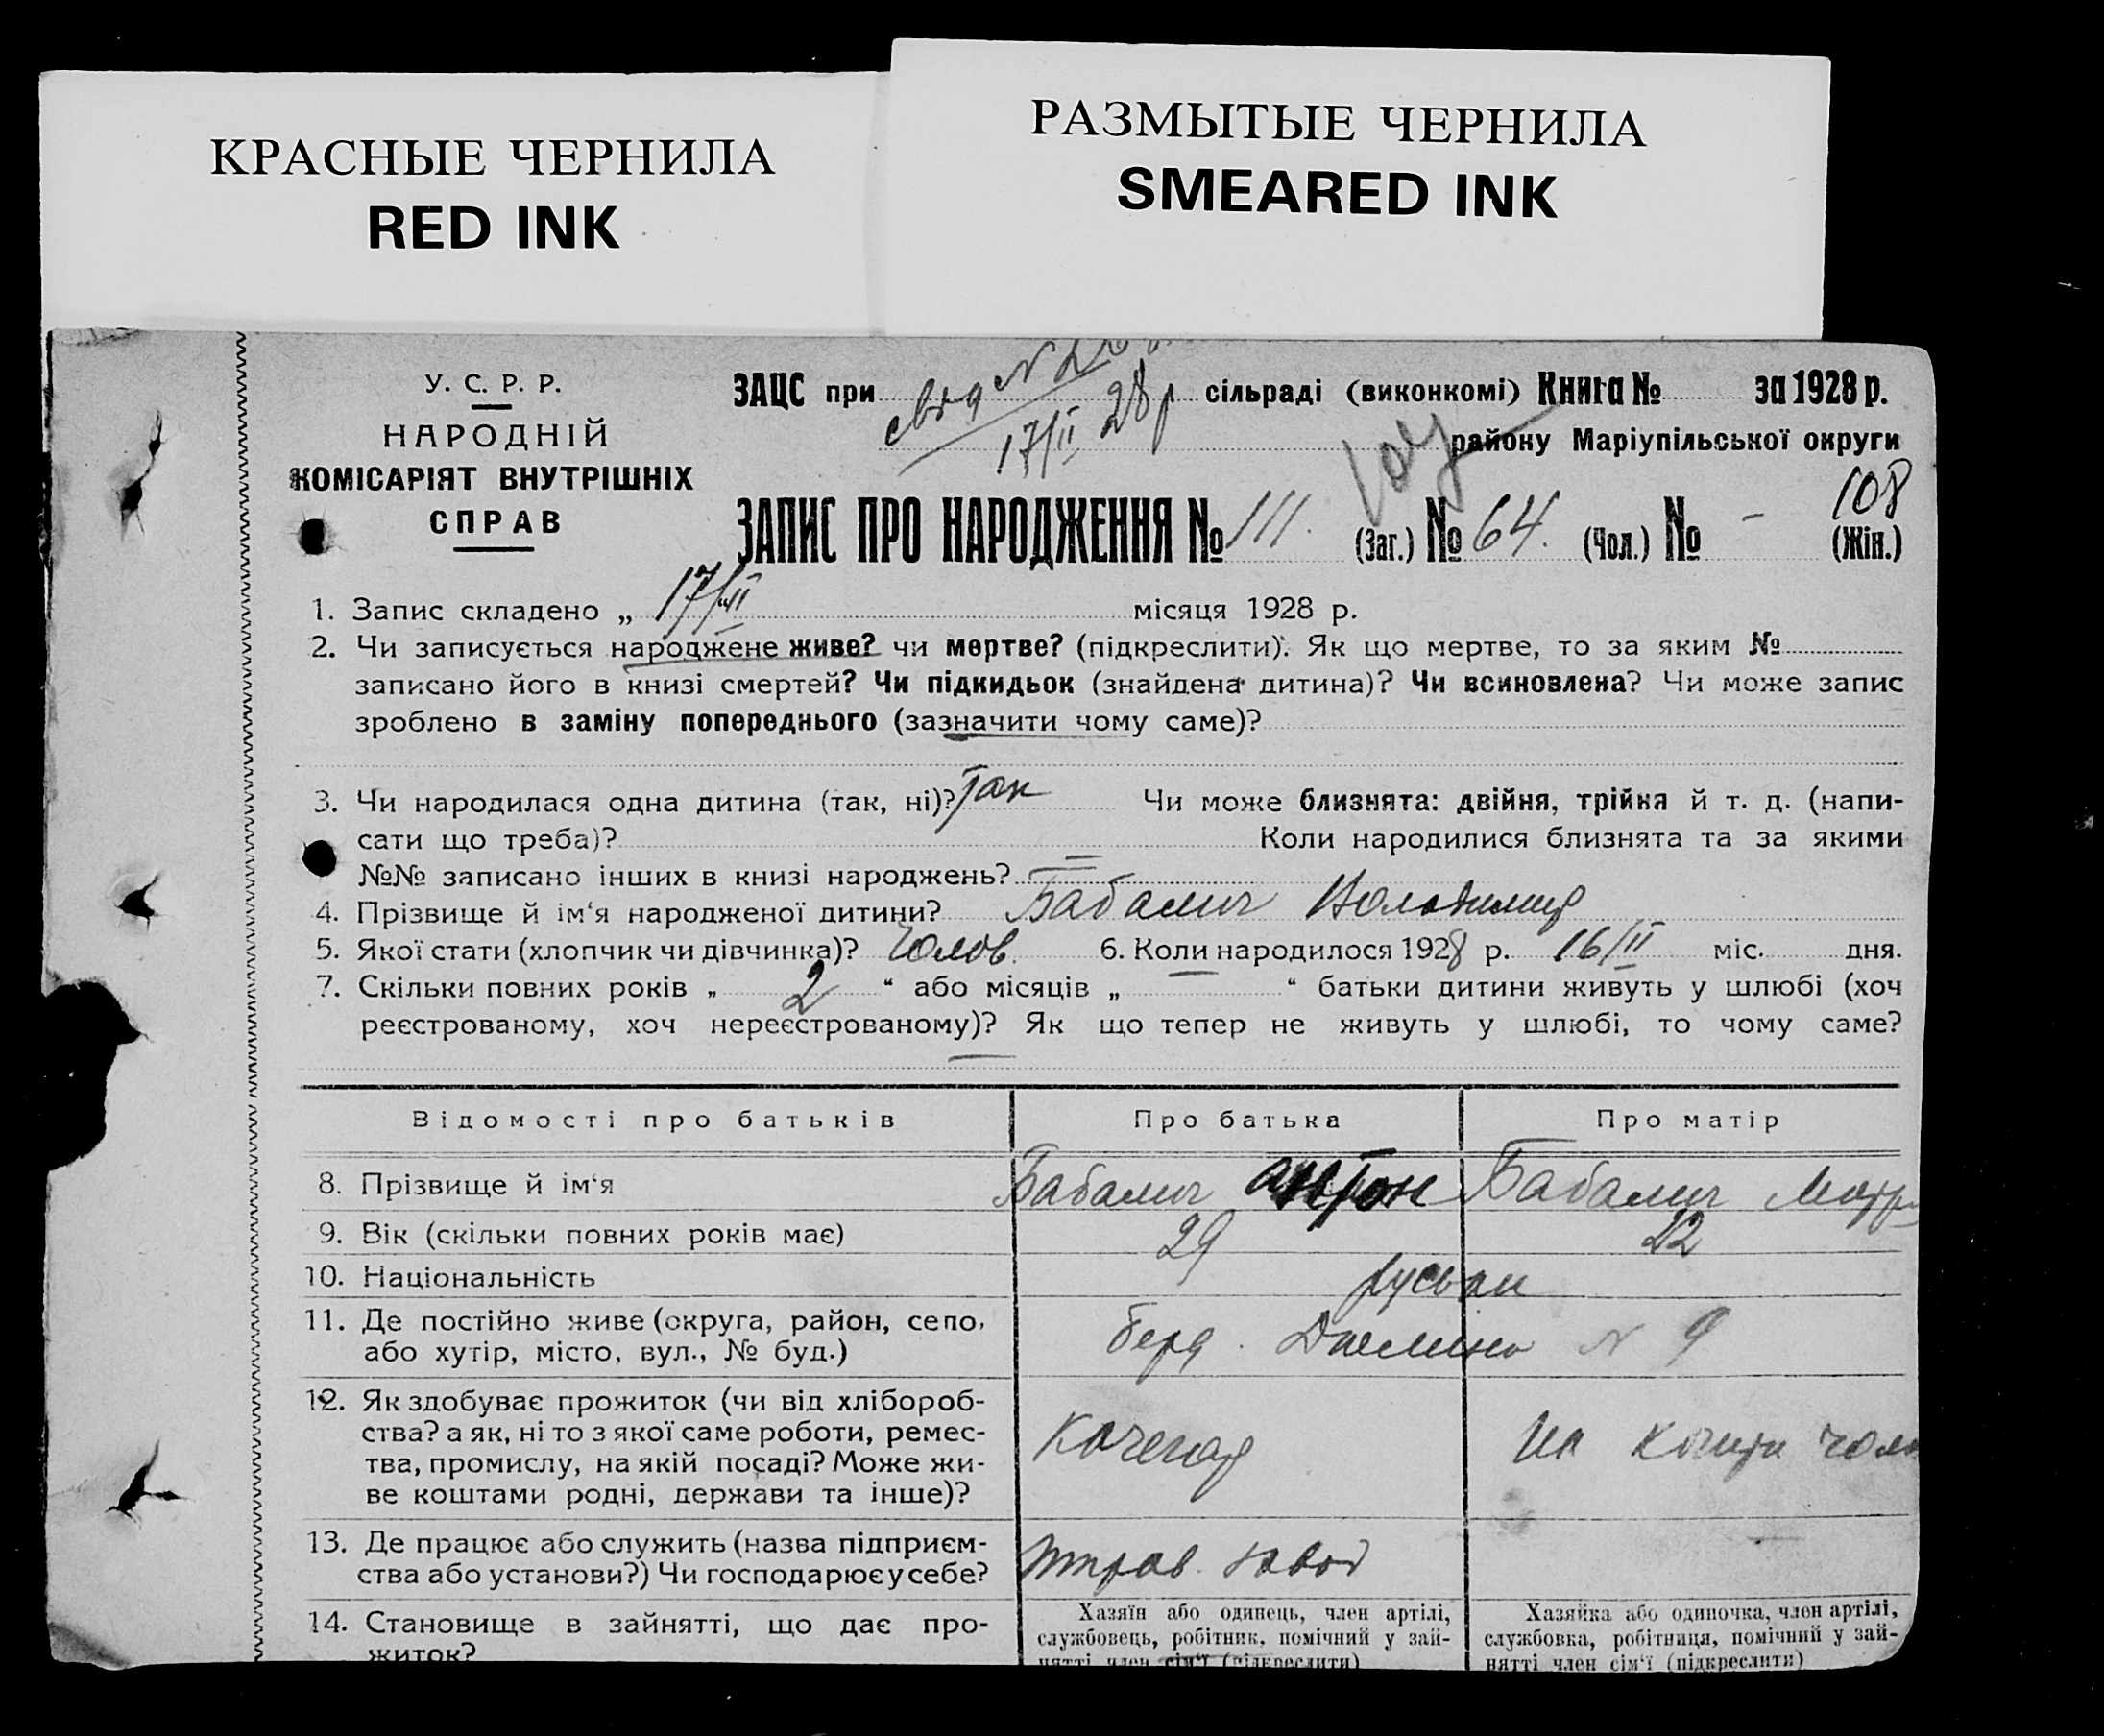 КРАСНЫЕ ЧЕРНИЛА
RED INK
РАЗМЫТЫЕ ЧЕРНИЛА
SMEARED INK
У. С. Р. Р.
НАРОДНІЙ
КОМІСАРІЯТ ВНУТРІШНІХ
СПРАВ
ЗАЦС при сільраді (виконкомі) Книга № за 1928 р.
17/II 28 р
району Маріупільської округи
108
ЗАПИС ПРО НАРОДЖЕННЯ № 111. (Заг.) № 64. (Чол.) № - (Жін.)
1. Запис складено „ 17/II місяця 1928 р.
2. Чи записується народжене живе? чи мертве? (підкреслити). Як що мертве, то за яким №
записано його в книзі смертей? Чи підкидьок (знайдена дитина)? Чи всиновлена? Чи може запис
зроблено в заміну попереднього (зазначити чому саме)?
3. Чи народилася одна дитина (так, ні)? Так Чи може близнята: двійня, трійня й т. д. (напи-
сати що треба)? Коли народилися близнята та за якими
№№ записано інших в книзі народжень?
4. Прізвище й ім‘я народженої дитини? Бабалич Володимир
5. Якої стати (хлопчик чи дівчинка)? Чолов. 6. Коли народилося 1928 р. 16/II міс. дня.
7. Скільки повних років „ 2 “ або місяців „ — “ батьки дитини живуть у шлюбі (хоч
реєстрованому, хоч нереєстрованому)? Як що тепер не живуть у шлюбі, то чому саме?
—
Відомості про батьків Про батька Про матір
8. Прізвище й ім‘я Бабалич Антон Бабалич
9. Вік (скільки повних років має) 29 22
10. Національність руськи
11. Де постійно живе (округа, район, село,
або хутір, місто, вул., № буд.) N 9
12. Як здобуває прожиток (чи від хлібороб-
ства? а як, ні то з якої саме роботи, ремес-
тва, промислу, на якій посаді? Може жи-
ве коштами родні, держави та інше)?
Кочегар На кошти
13. Де працює або служить (назва підприєм-
ства або установи?) Чи господарює у себе?
завод
14. Становище в зайнятті, що дає про-
житок?
Хазяїн або одинець, член артілі,
службовець, робітник, помічний у зай-
нятті член сім‘ї (підкреслити)
Хазяйка або одиночка, член артілі,
службовка, робітниця, помічний у зай-
нятті член сім‘ї (підкреслити)